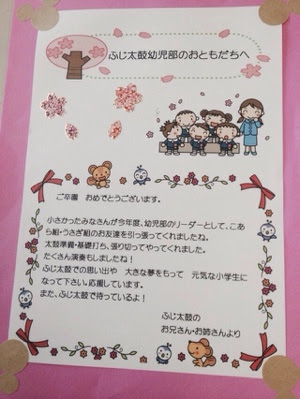 ふじ太鼓幼児部のおともだちへ
ご卒園　おめでとうございます。
小さかったみなさんが今年度、幼児部のリーダーとして、こあ
ら組・うさぎ組のお友達を引っ張ってくれましたね。
太鼓準備・基礎打ち、張り切ってやってくれました。
たくさん演奏もしましたね！
ふじ太鼓での思い出や　大きな夢をもって　元気な小学生に
なって下さい。応援しています。
また、ふじ太鼓で待っているよ！
ふじ太鼓の
お兄さん・お姉さんより